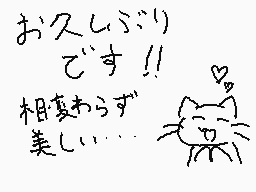 お久しぶり
です!!
相変わらず
美しい・・・